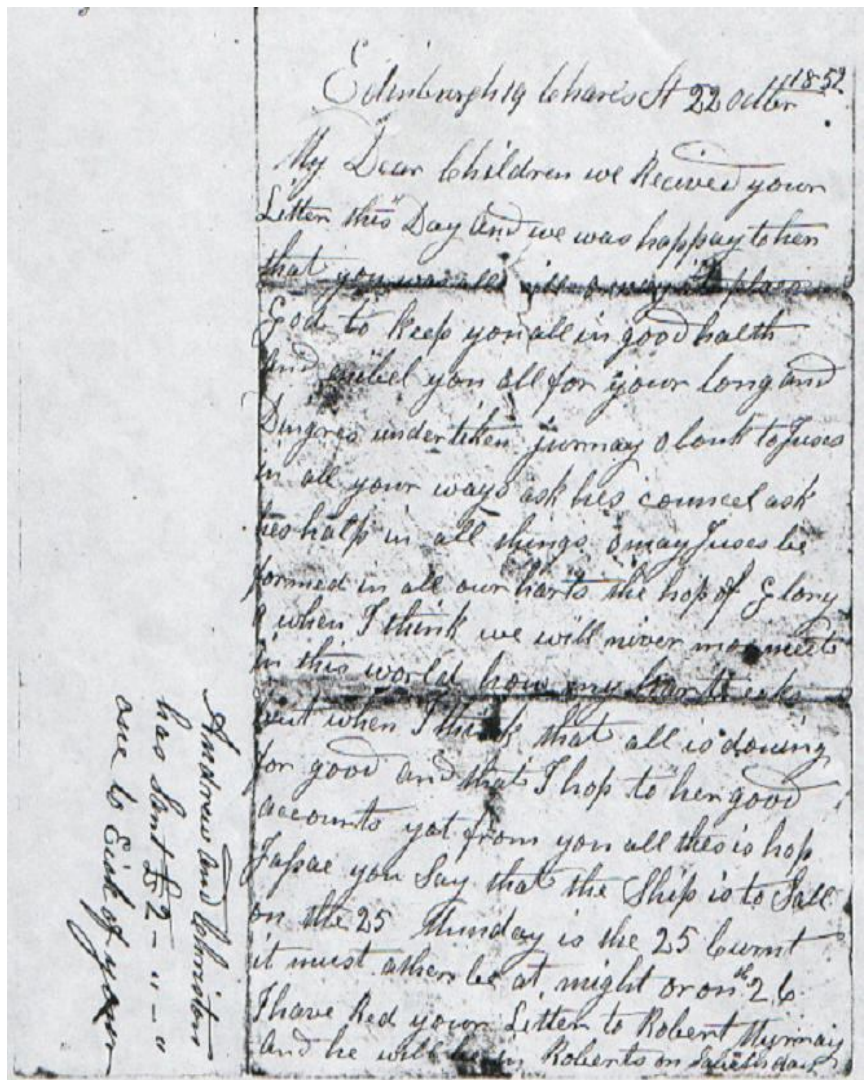 Edinburgh 19 Charles St 22 Octbr 1852
My Dear Children we Recived your
Letter this Day and we was happay to her
that you was all will O may it plase
God to keep you all in good halth
And you all for your long and
Dingres undertiken jurnay O louk to Juses
in all your ways ask his councel ask
his halp in all things O may Juses be
formed in all our harts the hop of Glory
O when I think we will niver mor meet
in this world how my hart
but when I think that all is douing
for good and that I hop to her good
accounts yat from you all this is hop
you Say that the Ship is to Sall
on the 25 Munday is the 25
it must ather be at night or on the 26
I have Red your Letter to Robert Murray
And he will be in Roberts on
Andrew and Christon
has Sant £2 - " - "
one to Eich of you